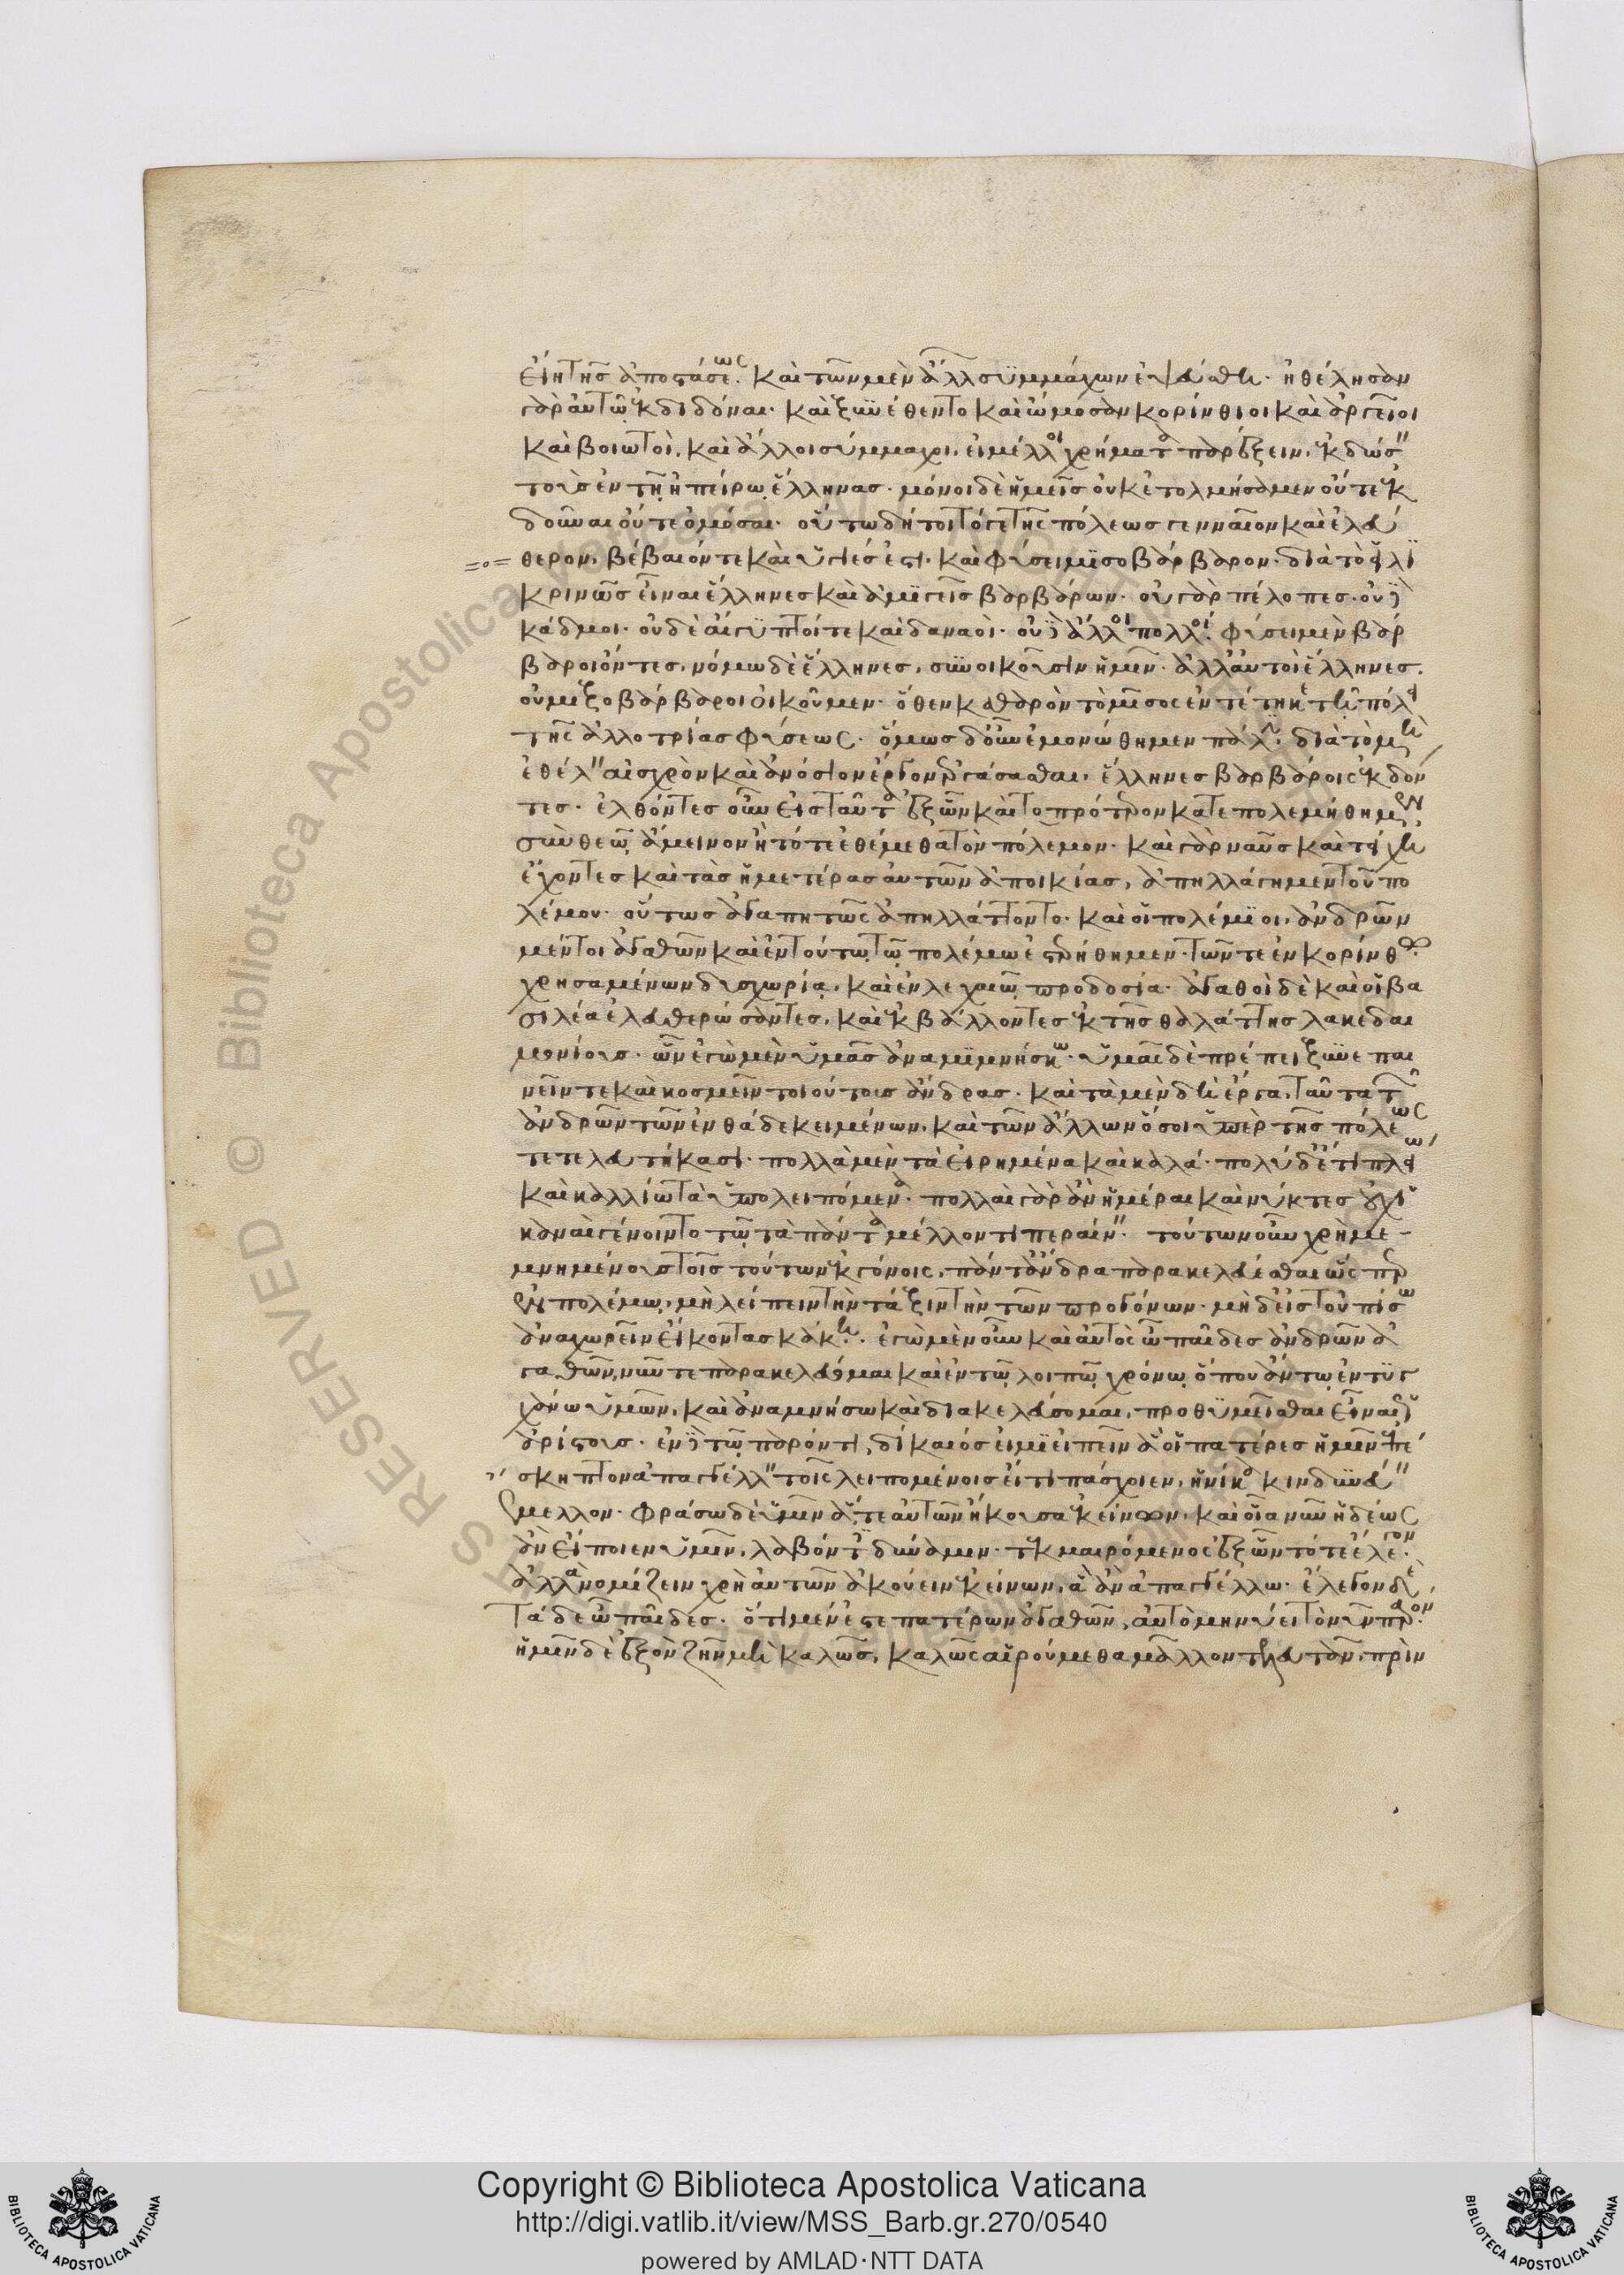 εἴη τῆς ἀποστάσεως. καὶ τῶν μὲν ἄλλ συμμάχων ἐψεύσθη· ἠθέλησαν
γὰρ αὐτῶ ἐκδιδόναι· καὶ ξυνέθεντο καὶ ὤμοσαν κορίνθιοι καὶ ἀργεῖοι
καὶ βοιωτοὶ, καὶ ἄλλοι σύμμαχοι, εἰ μέλλοι χρήματα παρέξειν, ἐκδώσειν
τοὺς ἐν τῆ ἠπείρω ἕλληνας· μόνοι δὲ ἡμεῖς οὐκ ἐτολμήσαμεν οὔτε ἐκ
δοῦναι οὔτε ὀμόσαι· οὕτω δή τοι τό γε τῆς πόλεως γενναῖον καὶ ἐλεύ
θερον, βέβαιόν τε καὶ ὑγιές ἐστι, καὶ φύσει μισοβάρβαρον· διὰ τὸ εἰλι
κρινῶς εἶναι ἕλληνες καὶ ἀμιγεῖς βαρβάρων· οὐ γὰρ πέλοπες· οὐδὲ
κάδμοι· οὐδὲ αἴγυπτοί τε καὶ δαναοὶ· οὐδὲ ἄλλοι πολλοί. φύσει μὲν βάρ
βαροι ὄντες, νόμω δὲ ἕλληνες, συνοικοῦσιν ἡμῖν· ἀλλ' αὐτοὶ ἕλληνες.
οὐ μιξοβάρβαροι οἰκοῦμεν· ὅθεν καθαρὸν τὸ μῖσος ἐντέτηκε τῆ πόλει
τῆς ἀλλοτρίας φύσεως. ὅμως δ' οὖν ἐμονώθημεν πάλιν, διὰ τὸ μὴ
ἐθέλειν αἰσχρὸν καὶ ἀνόσιον ἔργον ἐργάσασθαι, ἕλληνες βαρβάροις ἐκδόν
τες· ἐλθόντες οὖν εἰς ταῦτα ἐξ ὧν καὶ τὸ πρότερον κατεπολεμήθημεν
σὺν θεῶ ἄμεινον ἢ τότε ἐθέμεθα τὸν πόλεμον· καὶ γὰρ ναῦς καὶ τείχη
ἔχοντες καὶ τὰς ἡμετέρας αὐτῶν ἀποικίας, ἀπηλλάγημεν τοῦ πο
λέμου· οὕτως ἀγαπητῶς ἀπηλλάττοντο· καὶ οἱ πολέμιοι, ἀνδρῶν
μέντοι ἀγαθῶν καὶ ἐν τούτω τῶ πολέμω ἐστερήθημεν· τῶν τε ἐν κορίνθω
χρησαμένων δυσχωρία, καὶ ἐν λεχαίω προδοσία· ἀγαθοὶ δὲ καὶ οἱ βα
σιλέα ἐλευθερώσαντες, καὶ ἐκβάλλοντες ἐκ τῆς θαλάττης λακεδαι
μονίους· ὧν ἐγὼ μὲν ὑμᾶς ἀναμιμνήσκω· ὑμᾶς δὲ πρέπει ξυνεπαι
νεῖν τε καὶ κοσμεῖν τοιούτους ἄνδρας· καὶ τὰ μὲν δὴ ἔργα, ταῦτα τῶν
ἀνδρῶν τῶν ἐνθάδε κειμένων, καὶ τῶν ἄλλων ὅσοι ὑπὲρ τῆς πόλεως
τετελευτήκασι· πολλὰ μὲν τὰ εἰρημένα καὶ καλά· πολὺ δ' ἔτι πλείω
καὶ καλλίω τὰ ὑπολειπόμενα· πολλαὶ γὰρ ἂν ἡμέραι καὶ νύκτες οὐχ ἱ
καναὶ γένοιντο τῶ τὰ πάντα μέλλοντι περαίνειν. τούτων οὖν χρὴ με-
μνημένους τοῖς τούτων ἐκγόνοις, πάντ' ἄνδρα παρακελεύεσθαι ὥσπερ
ἐν πολέμω, μὴ λείπειν τὴν τάξιν τὴν τῶν προγόνων· μὴ δ' εἰς τοὐπίσω
ἀναχωρεῖν εἴκοντας κάκη. ἐγὼ μὲν οὖν καὶ αὐτὸς ὦ παῖδες ἀνδρῶν ἀ
γαθῶν, νῦν τε παρακελεύομαι καὶ ἐν τῶ λοιπῶ χρόνω, ὅπου ἄν τω ἐντυγ
χάνω ὑμῶν, καὶ ἀναμνήσω καὶ διακελεύσομαι, προθυμεῖσθαι εἶναι ὡς
ἀρίστους· ἐν δὲ τῶ παρόντι, δίκαιός εἰμι εἰπεῖν ἃ οἱ πατέρες ἡμῖν ἐπέ
σκηπτον ἀπαγγέλλειν τοῖς λειπομένοις εἴ τι πάσχοιεν, ἡνίκα κινδυνεύειν
ἔμελλον· φράσω δὲ ὑμῖν ἅ τε αὐτῶν ἤκουσα ἐκείνων, καὶ οἷα νῦν ἡδέως
ἂν εἴποιεν ὑμῖν, λαβόντες δύναμιν· τεκμαιρόμενος ἐξ ὧν τότε ἔλεγον.
ἀλλὰ νομίζειν χρὴ αὐτῶν ἀκούειν ἐκείνων, ἃ ἂν ἀπαγγέλλω· ἔλεγον δὲ
τάδε ὦ παῖδες· ὅτι μέν ἐστε πατέρων ἀγαθῶν, αὐτὸ μηνύει τὸ νῦν παρόν.
ἡμῖν δὲ ἐξὸν ζῆν μὴ καλῶς, καλῶς αἱρούμεθα μᾶλλον τελευτᾶν, πρὶν
RESERVED © Biblioteca Apostolica Vaticana
BIBLIOTECA APOSTOLICA VATICANA
Copyright © Biblioteca Apostolica Vaticana
http://digi.vatlib.it/view/MSS_Barb.gr.270/0540
powered by AMLAD·NTT DATA
BIBLIOTECA APOSTOLICA VATICANA